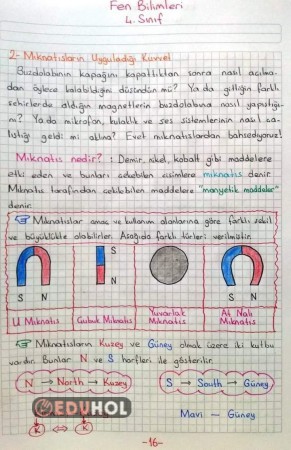 Fen Bilimleri
4. Sınıf
2- Mıknatısların Uyguladığı Kuvvet
Buzdolabının kapağını kapattıktan sonra nasıl açılma-
dan öylece kalabildiğini düşündün mü? Ya da gittiğin farklı
şehirlerde aldığın magnetlerin buzdolabına nasıl yapıştığı-
nı? Ya da mikrofon, kulaklık ve ses sistemlerinin nasıl ça-
lıştığı geldi mi aklına? Evet mıknatıslardan bahsediyoruz!
Mıknatıs nedir? : Demir, nikel, kobalt gibi maddelere
etki eden ve bunları çekebilen cisimlere mıknatıs denir.
Mıknatıs tarafından çekilebilen maddelere "manyetik maddeler"
denir.
Mıknatıslar amaç ve kullanım alanlarına göre farklı şekil
ve büyüklükte olabilirler. Aşağıda farklı türleri verilmiştir.
S N
S
N
S N
U Mıknatıs
Çubuk Mıknatıs
Yuvarlak
Mıknatıs
At Nalı
Mıknatıs
Mıknatısların Kuzey ve Güney olmak üzere iki kutbu
vardır. Bunlar N ve S harfleri ile gösterilir.
N → North → Kuzey
S → South → Güney
EDUHOL
Mavi - Güney
K ⇔ K
-16-